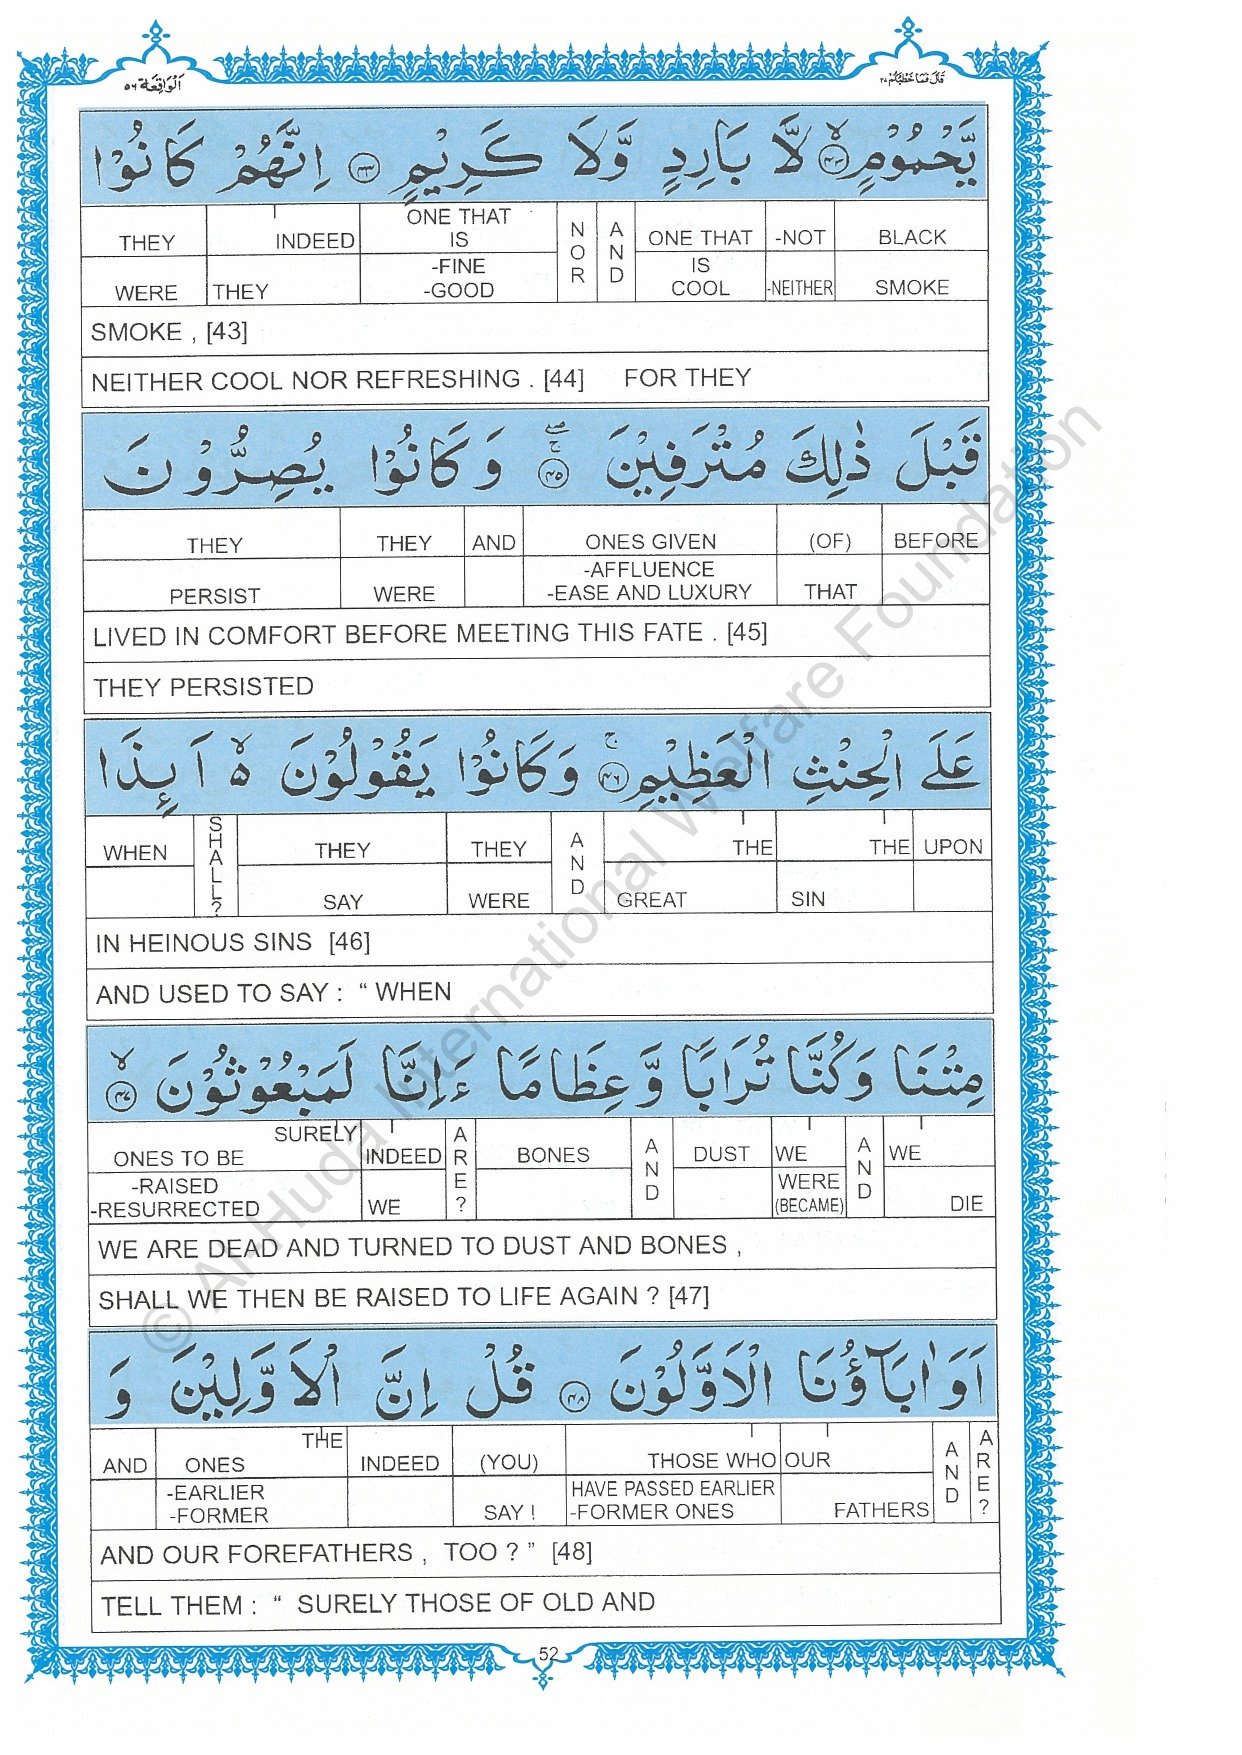 اَلْوَاقِعَة ٥٦
قَالَ فَمَا خَطْبُكُمْ ٢٧
يَّحْمُوْمٍ ۙ﴿٤٣﴾ لَّا بَارِدٍ وَّلَا كَرِيْمٍ ﴿٤٤﴾ اِنَّهُمْ كَانُوْا
THEY INDEED ONE THAT IS NOR AND ONE THAT -NOT BLACK
WERE THEY -FINE -GOOD IS COOL -NEITHER SMOKE
SMOKE , [43]
NEITHER COOL NOR REFRESHING . [44] FOR THEY
قَبْلَ ذٰلِكَ مُتْرَفِيْنَ ﴿٤٥﴾ۚۖ وَكَانُوْا يُصِرُّوْنَ
THEY THEY AND ONES GIVEN (OF) BEFORE
PERSIST WERE -AFFLUENCE -EASE AND LUXURY THAT
LIVED IN COMFORT BEFORE MEETING THIS FATE . [45]
THEY PERSISTED
عَلَى الْحِنْثِ الْعَظِيْمِ ﴿٤٦﴾ۚ وَكَانُوْا يَقُوْلُوْنَ ۙ٥ اَئِذَا
WHEN SHALL? THEY THEY AND THE THE UPON
SAY WERE GREAT SIN
IN HEINOUS SINS [46]
AND USED TO SAY : “ WHEN
مِتْنَا وَكُنَّا تُرَابًا وَّعِظَامًا ءَاِنَّا لَمَبْعُوْثُوْنَ ﴿٤٧﴾ۙ
SURELY ONES TO BE INDEED ARE? BONES AND DUST WE AND WE
-RAISED -RESURRECTED WE WERE (BECAME) DIE
WE ARE DEAD AND TURNED TO DUST AND BONES ,
SHALL WE THEN BE RAISED TO LIFE AGAIN ? [47]
اَوَاٰبَآؤُنَا الْاَوَّلُوْنَ ﴿٤٨﴾ قُلْ اِنَّ الْاَوَّلِيْنَ وَ
AND THE ONES INDEED (YOU) THOSE WHO OUR AND ARE?
-EARLIER -FORMER SAY ! HAVE PASSED EARLIER -FORMER ONES FATHERS
AND OUR FOREFATHERS , TOO ? ” [48]
TELL THEM : “ SURELY THOSE OF OLD AND
52
© Al-Huda International Welfare Foundation